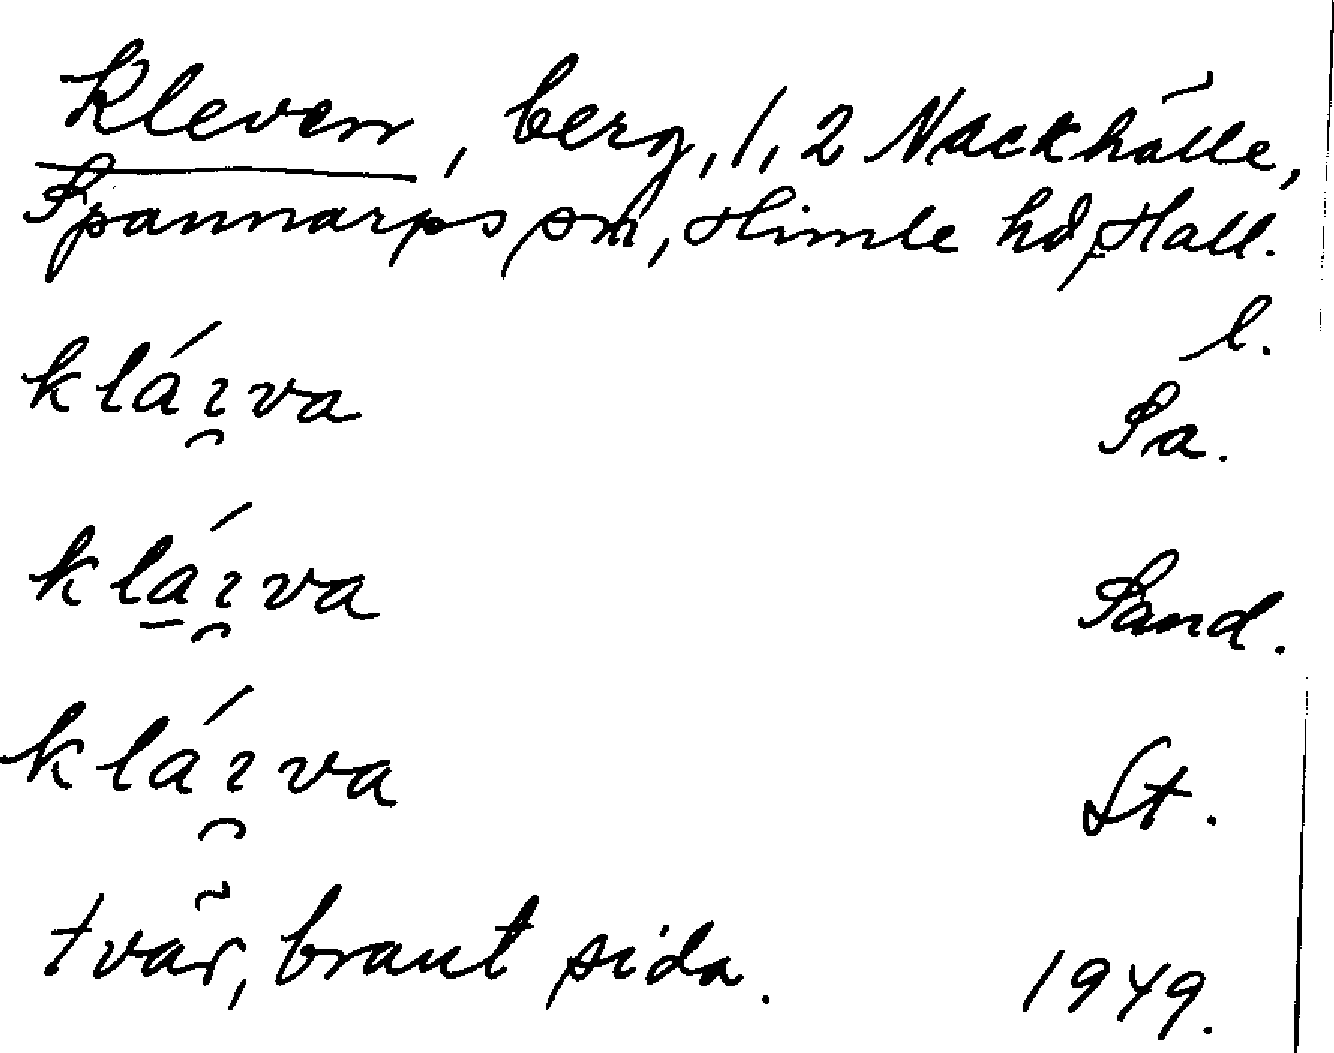 Kleven, berg, 1, 2 Nackhälle,
Spannarps sn, Himle hd, Hall.
l.
kláı̯va Sa.
kla̱ı̯́va Sand.
kláı̯va St.
tvär, brant sida. 1949.